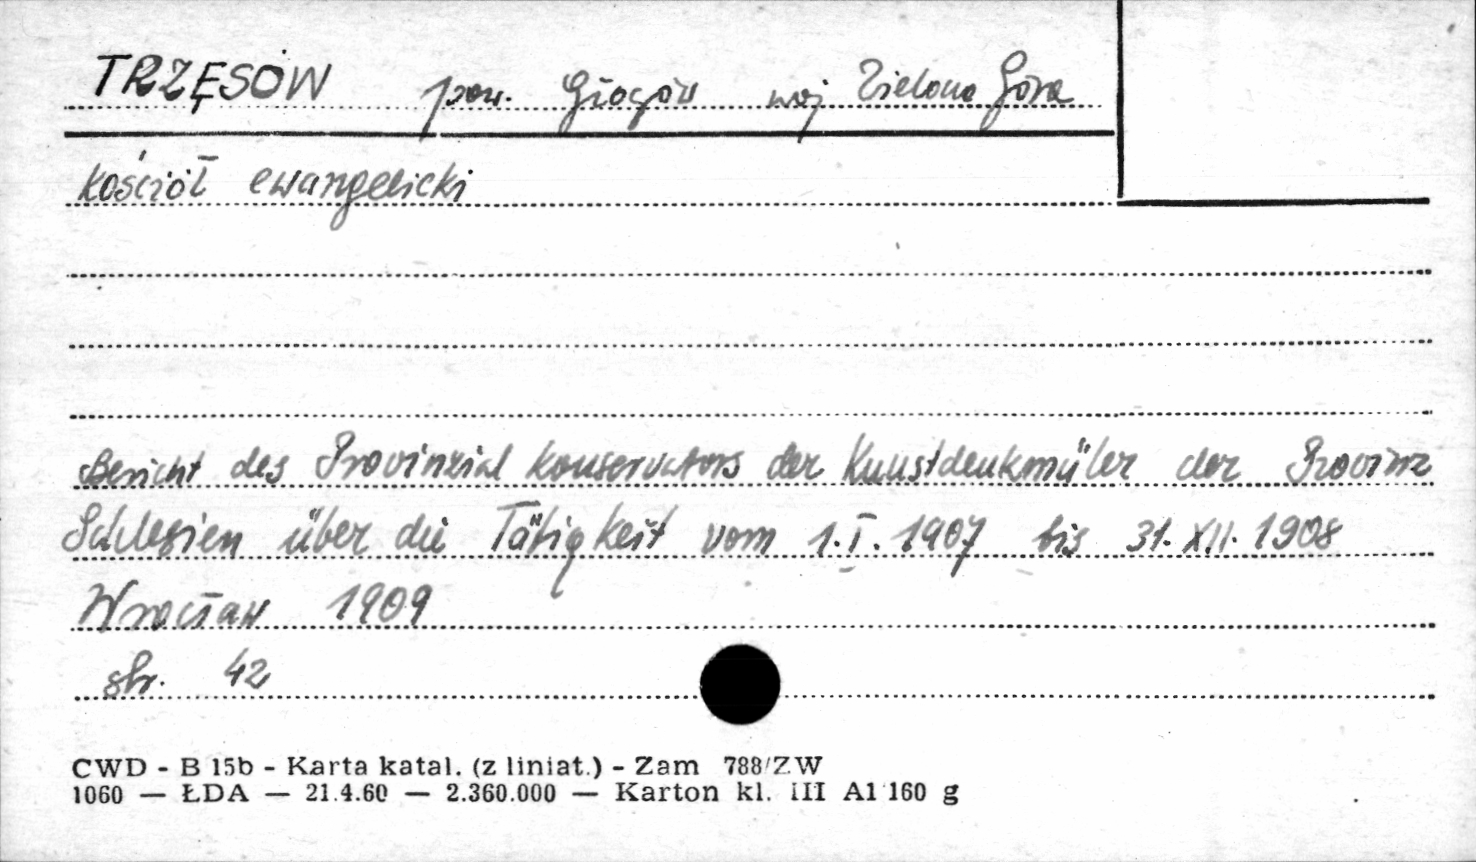 TRZĘSÓW pow. Głogów woj Zielona Góra
kościół ewangelicki
Bericht des Provinzial konservators der Kunstdenkmäler der Provinz
Schlesien über die Tätigkeit vom 1.I.1907 bis 31.XII.1908
Wrocław 1909
str. 42
CWD - B 15b - Karta katal. (z liniat.) - Zam 788/ZW
1060 — ŁDA — 21.4.60 — 2.360.000 — Karton kl. III A1 160 g